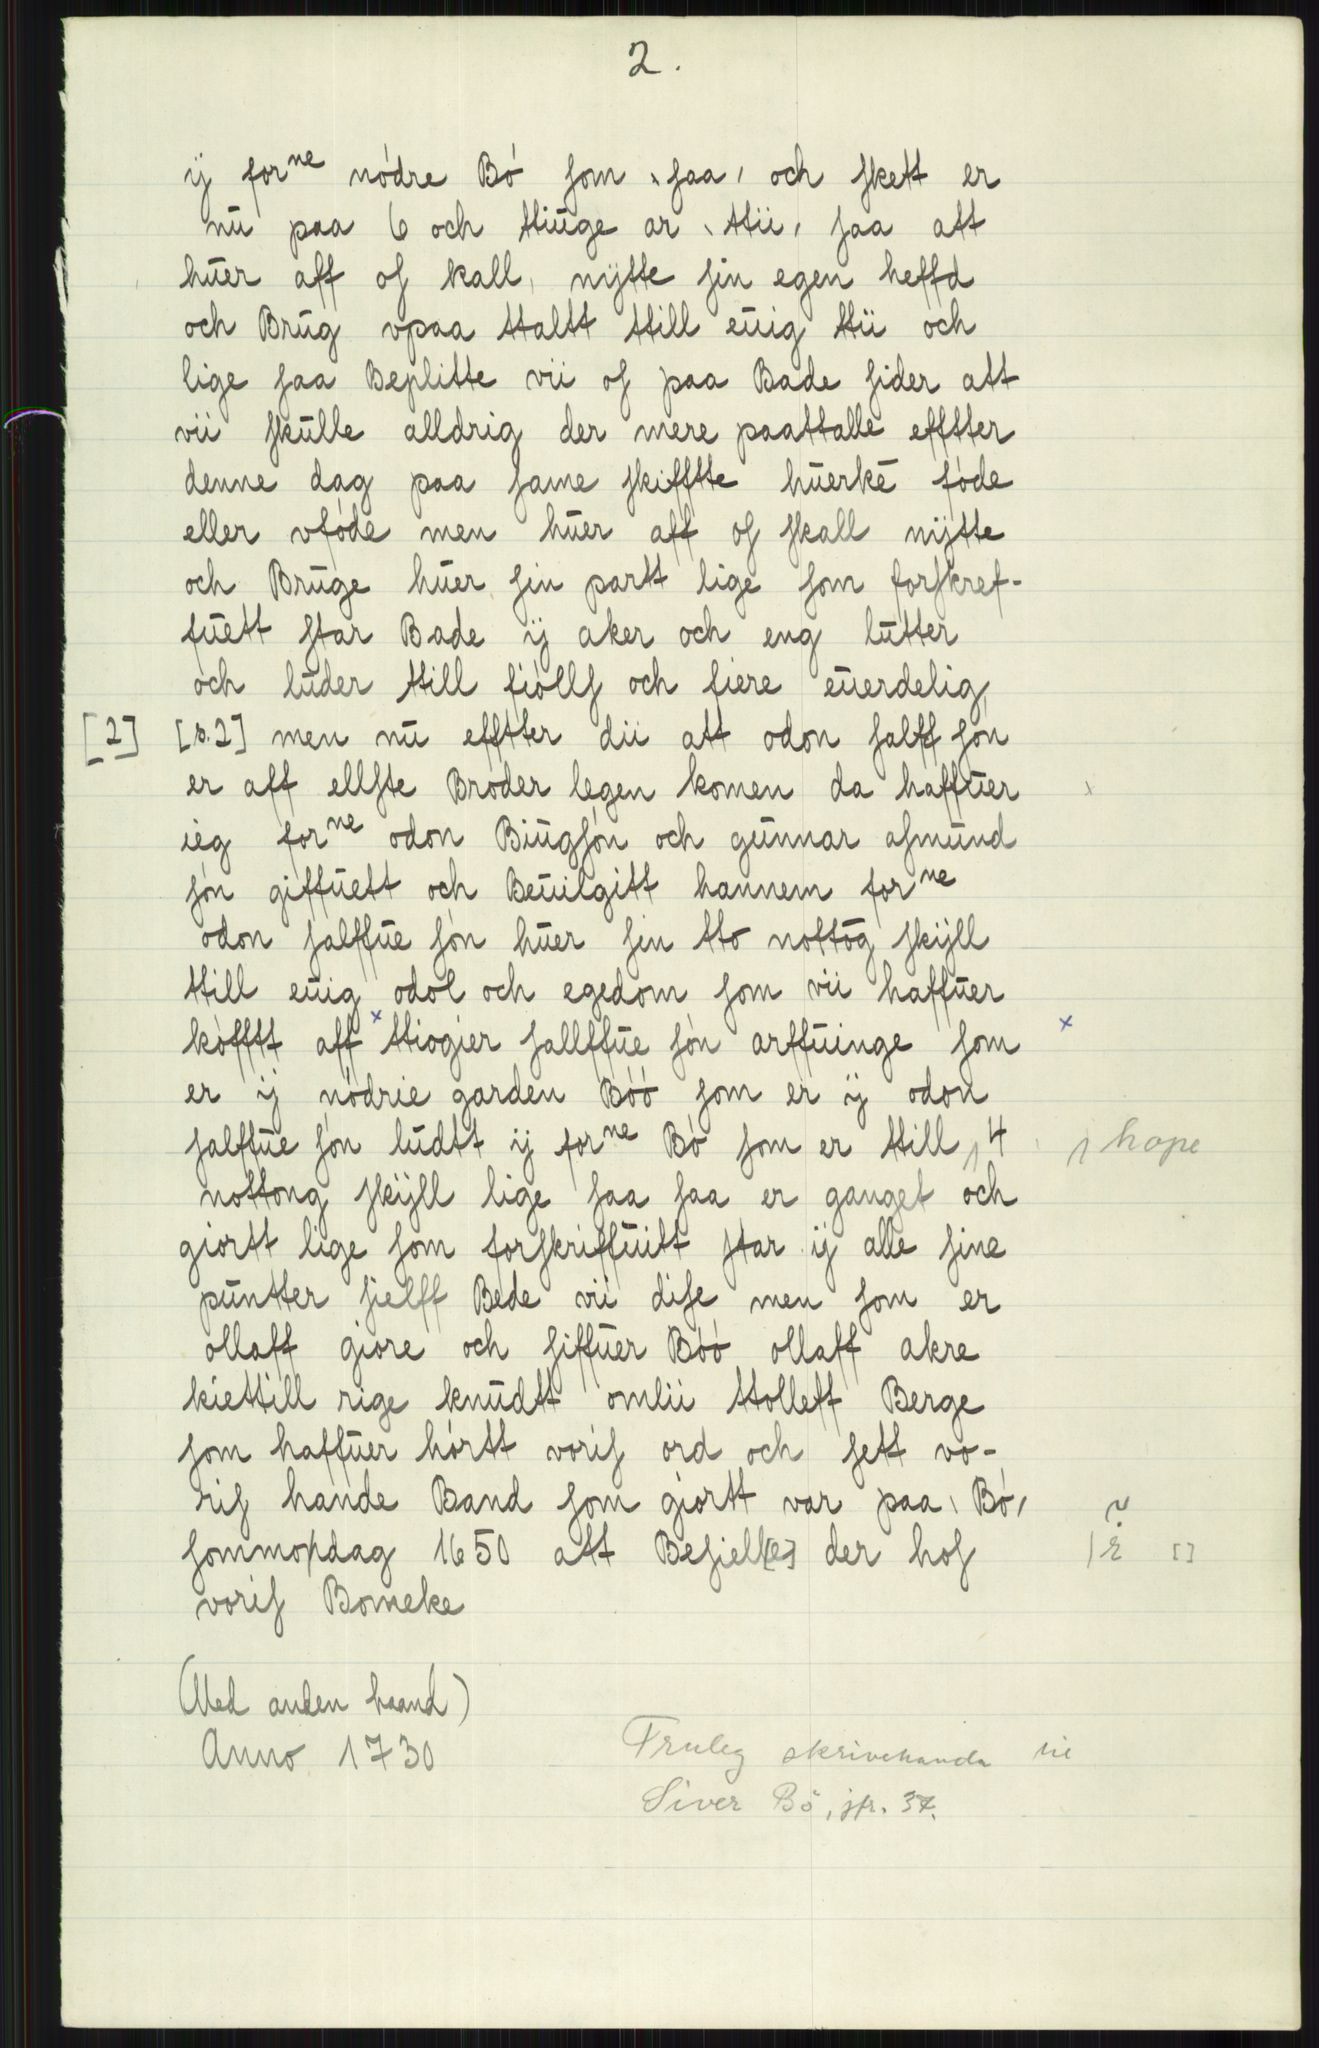 2.
ij forne nódre Bó som ˎsaaˏ och skett er
nū paa 6 och ttiūge ar ˎttiiˏ saa att
hūer aff os kall nijtte sin egen heffd
och Brūg vpaa ttaltt ttill eūig ttii och
lige saa Beplitte vii os paa Bade sider att
vii skūlle alldrig der mere paattalle efftter
denne dag paa same skifftte hūerkē fóde
eller vfóde men hūer aff os skall nijtte
och Brūge hūer sin partt lige som forskref-
fūett star Bade ij aker och eng lūtter
och lūder ttill fiólls och fiere eūerdelig
[2] [s.2] men nū efftter dii att odon salff són
er aff ellste Bróder legen komen da haffūer
ieg forne odon Biūgsón och gūnnar asmūnd
són giffūett och Beūilgitt hannem forne
odon salffūe són hūer sin tto nottōg skijll
ttill eūig odol och egedom som vii haffūer
kófftt aff x ttiogier sallffūe són arffūinge som x
er ij nódrie garden Bóó som er ij odon
salffūe són lūdtt ij forne Bó som er ttill ꞁ4 ꞁ hope
nottong skijll lige saa saa er ganget och
giortt lige som forskriffūitt star ij alle sine
pūntter sielff Bede vii dise men som er
ollaff giore och siffūer Bóó ollaff akre
kiettill rige knūdtt omlii ttolleff Berge
som haffūer hórtt voris ord och sett vo-
ris hande Band som giortt var paa ˎBóˏ
sommordag 1650 att Besiel[e] der hos |r ? []
voris Bomeke
(Med anden haand)
Anno 1730
Truleg skrivehanda til
Siver Bö, jfr. 37.